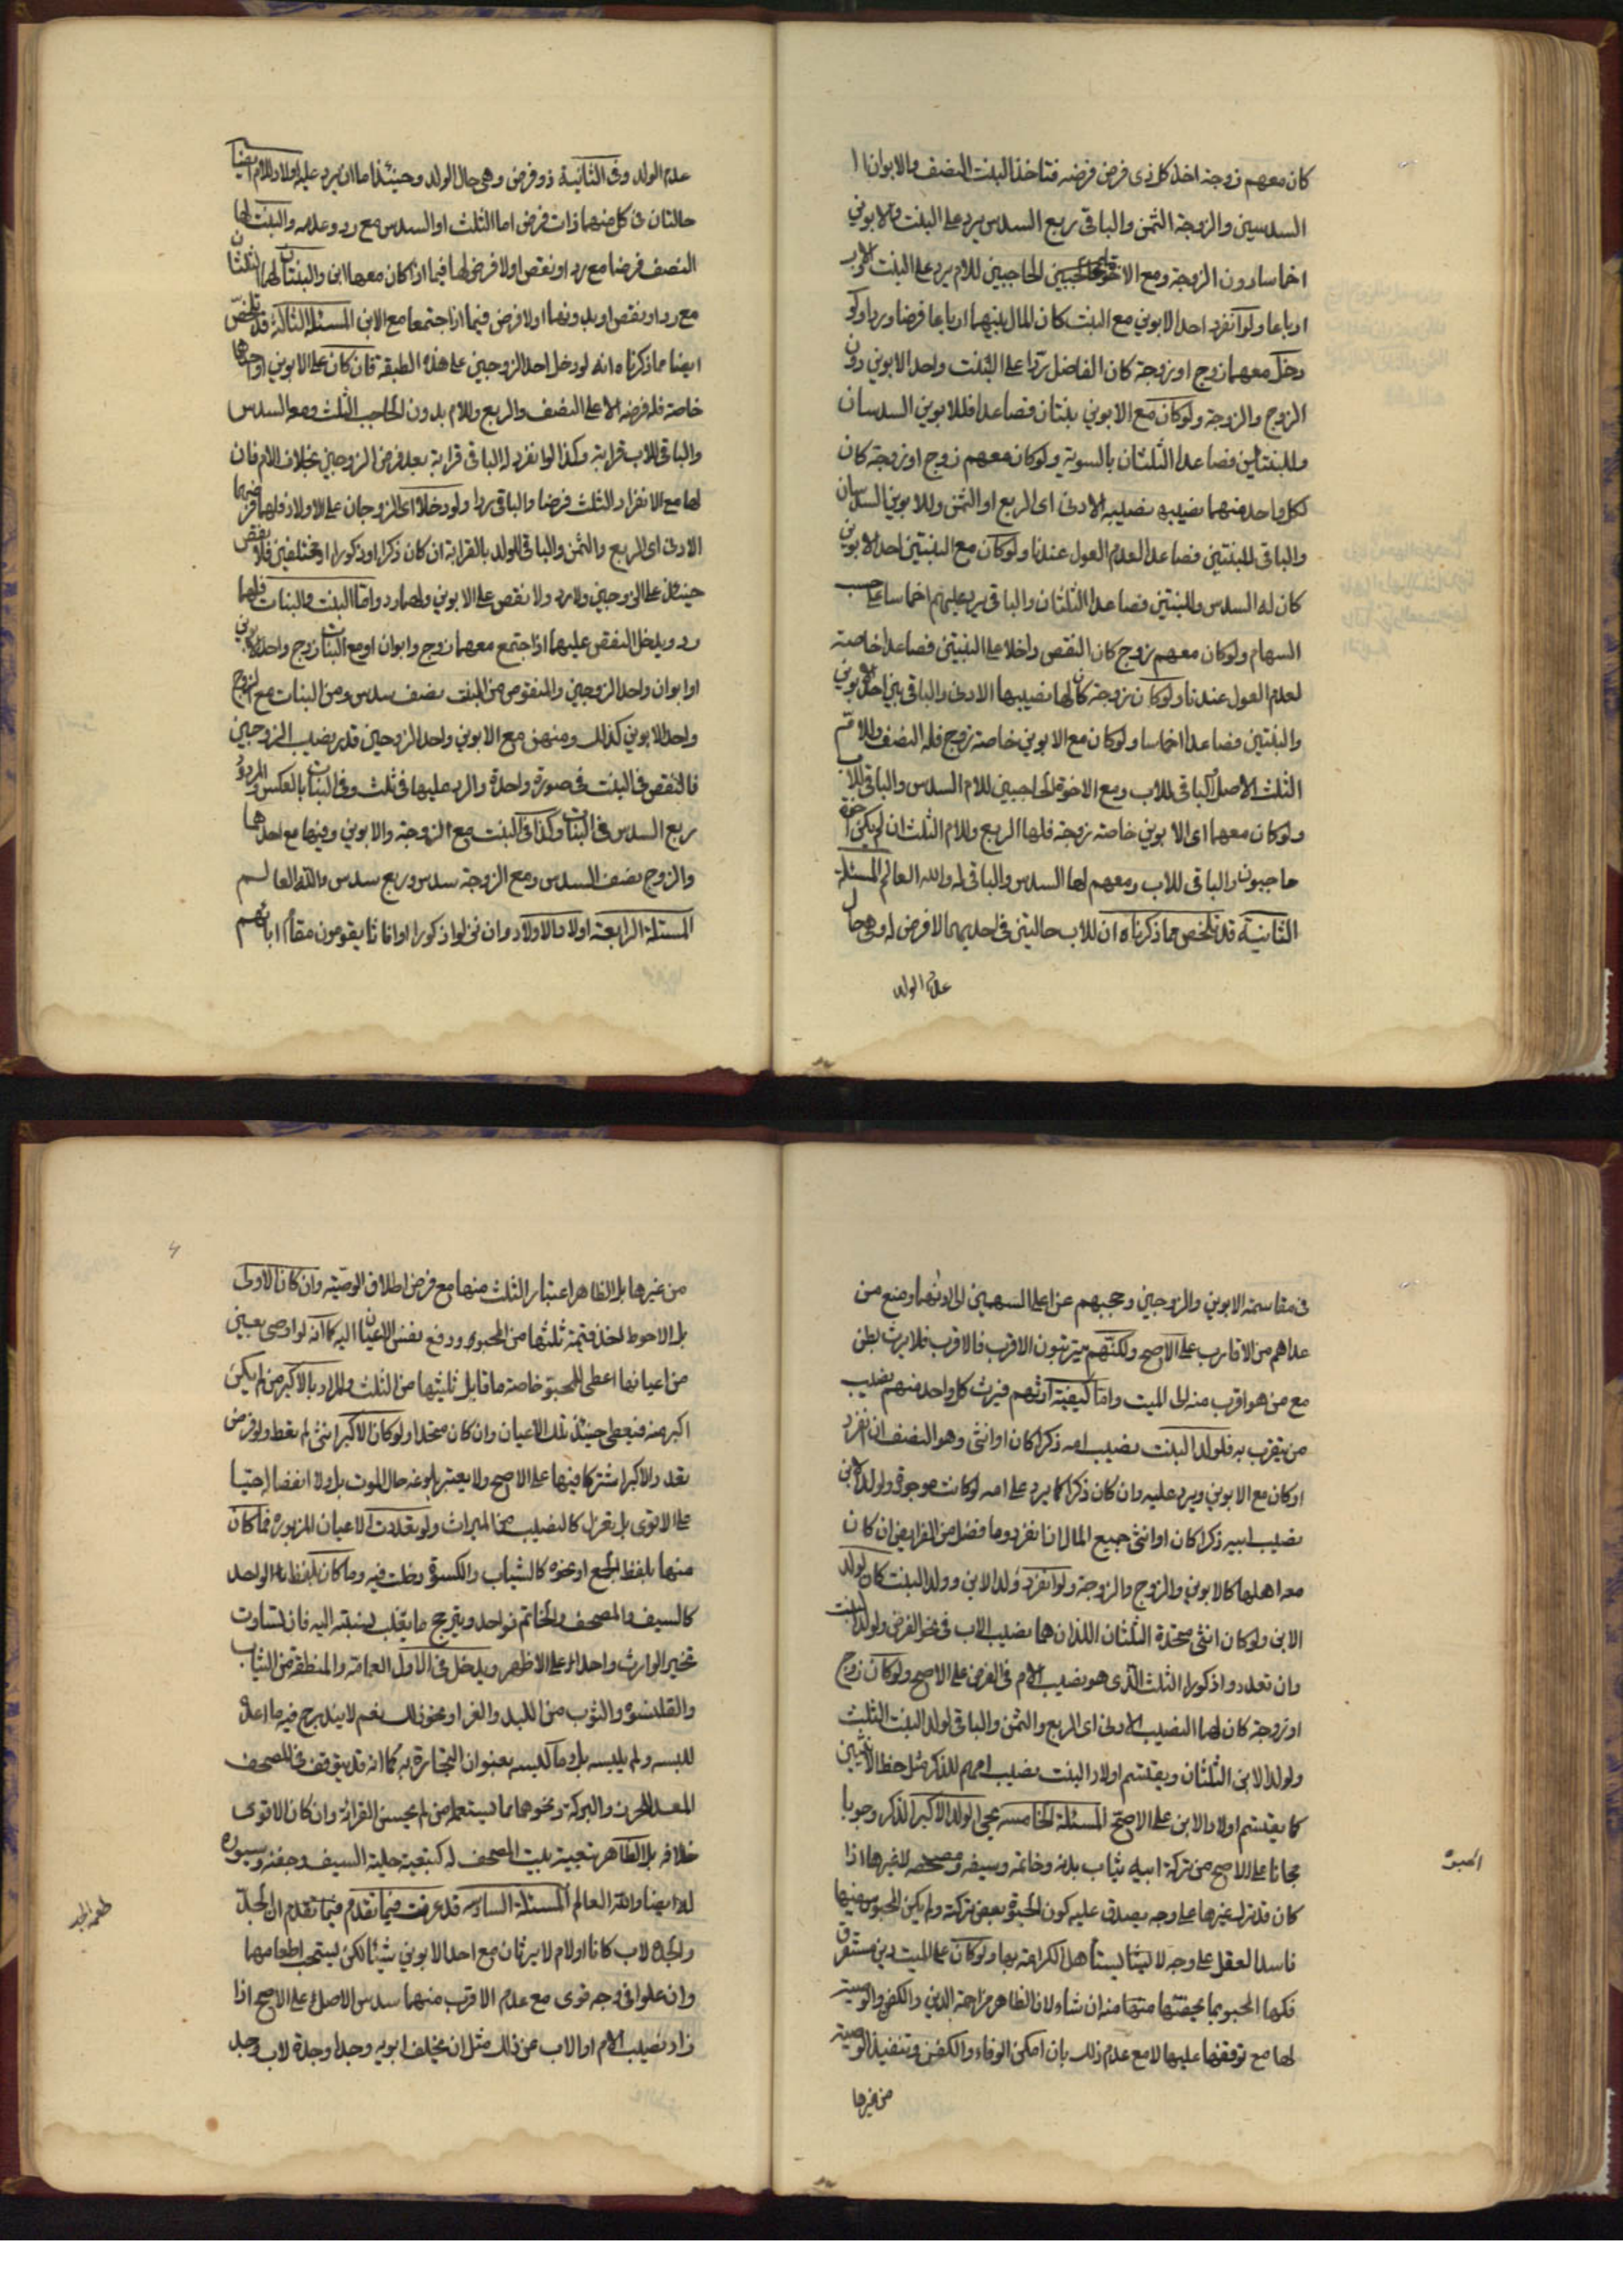 كان معهم زوجة اخذ كل ذى فرض فرضه فتاخذ البنت النصف والابوان ا
السدسين والزوجة الثمن والباقى ربع السدس يرد على البنت والابوين
اخماسا دون الزوجة ومع الاخوة الحاجبين للام يرد على البنت والاب
ارباعا ولو انفرد احد الابوين مع البنت كان المال بينهما ارباعا فرضا وردا ولو
دخل معهما زوج او زوجة كان الفاضل ردا على البنت واحد الابوين دون
الزوج والزوجة ولو كان مع الابوين بنتان فصاعدا فللابوين السدسان
وللبنتين فصاعدا الثلثان بالسوية ولو كان معهم زوج او زوجة كان
لكل واحد منهما نصيبه الادنى اى الربع او الثمن وللابوين السدسان
والباقى للبنتين فصاعدا لعدم العول عندنا ولو كان مع البنتين احد الابوين
كان له السدس وللبنتين فصاعدا الثلثان والباقى يرد عليهم اخماسا على حسب
السهام ولو كان معهم زوج كان النقص داخلا على البنتين فصاعدا خاصة
لعدم العول عندنا ولو كان زوجة كان لها نصيبها الادنى والباقى بين احد الابوين
والبنتين فصاعدا اخماسا ولو كان مع الابوين خاصة زوج فله النصف وللام
الثلث الاصل والباقى للاب ومع الاخوة الحاجبين للام السدس والباقى للاب
ولو كان معهما اى الابوين خاصة زوجة فلها الربع وللام الثلث ان لم يكن اخوة
حاجبون والباقى للاب ومعهم لها السدس والباقى له والله العالم المسئلة
الثانية قد تلخص مما ذكرناه ان للاب حالتين فى احديهما لا فرض له وهى حال
عدم الولد
عدم الولد وفى الثانية ذو فرض وهى حال الولد وحينئذ اما ان يرد عليه اولا وللام ايضا
حالتان فى كل منهما ذات فرض اما الثلث او السدس مع رد وعدمه والبنت لها
النصف فرضا مع رد او نقص اولا فرض لها فيما اذا كان معها ابن والبنتان لهما الثلثان
مع رد او نقص او بدونهما اولا فرض فيما اذا اجتمعا مع الابن المسئلة الثالثة قد تلخص
ايضا مما ذكرناه انه لو دخل احد الزوجين على هذه الطبقة فان كان على الابوين او احدهما
خاصة فله فرضه الاعلى النصف والربع وللام بدون الحاجب الثلث ومعه السدس
والباقى للاب قرابة وكذا لو انفرد له الباقى قرابة بعد فرض الزوجين بخلاف الام فان
لها مع الانفراد الثلث فرضا والباقى ردا ولو دخلا اى الزوجان على الاولاد فلهما فرضهما
الادنى اى الربع والثمن والباقى للولد بالقرابة ان كان ذكرا او ذكورا او مختلفين فلا نقص
حينئذ على الزوجين ولا رد ولا نقص على الابوين ولهما رد واما البنت والبنات فلهما
رد ويدخل النقص عليهما اذا اجتمع معهما زوج وابوان او مع البنات زوج واحد الابوين
او ابوان واحد الزوجين والمنقوص من البنت نصف سدس ومن البنات مع الزوج
واحد الابوين كذلك ومنهن مع الابوين واحد الزوجين قدر نصيب الزوجين
فالنقص فى البنت فى صورة واحدة والرد عليها فى ثلث وفى البنات بالعكس والمردود
ربع السدس فى البنات وكذا فى البنت مع الزوجة والابوين وفيها مع احدهما
والزوج نصف السدس ومع الزوجة سدس وربع سدس والله العالم
المسئلة الرابعة اولاد الاولاد وان نزلوا ذكورا او اناثا يقومون مقام ابائهم
فى مقاسمة الابوين والزوجين وحجبهم عن اعلى السهمين الى ادناهما ومنع من
عداهم من الاقارب على الاصح ولكنهم يترتبون الاقرب فالاقرب فلا يرث بطن
مع من هو اقرب منه الى الميت واما كيفية ارثهم فيرث كل واحد منهم نصيب
من يتقرب به فلولد البنت نصيب امه ذكرا كان او انثى وهو النصف ان انفرد
او كان مع الابوين ويرد عليه وان كان ذكرا كما يرد على امه لو كانت موجودة ولولد الابن
نصيب ابيه ذكرا كان او انثى جميع المال ان انفرد وما فضل من الفرايض ان كان
معه اهلها كالابوين والزوج والزوجة ولو انفرد ولد الابن وولد البنت كان لولد
الابن ولو كان انثى متحدة الثلثان اللذان هما نصيب الاب فى نحو الفرض ولولد البنت
وان تعددوا ذكورا الثلث الذى هو نصيب الام فى الفرض على الاصح ولو كان زوج
او زوجة كان لهما النصيب الادنى اى الربع والثمن والباقى لولد البنت الثلث
ولولد الابن الثلثان ويقتسم اولاد البنت نصيب امهم للذكر مثل حظ الانثيين
كما يقتسم اولاد الابن على الاصح المسئلة الخامسة يحبى الولد الاكبر الذكر وجوبا
مجانا على الاصح من تركة ابيه بثياب بدنه وخاتمه وسيفه ومصحفه لا غيرها اذا
كان قد ترك غيرها على وجه يصدق عليه كون الحبوة بعض تركته ولم يكن المحبو سفيها
فاسد العقل على وجه لا يستأهل الكرامة بها ولو كان على الميت دين مستغرق
فكها المحبو بما يخصها منه ان شاء لان الظاهر مزاحمة الدين والكفن والوصية
لها مع توقفها عليها لا مع عدم ذلك بان امكن الوفاء والكفن وتنفيذ الوصية
من غيرها
الحبوة
من غيرها بل الظاهر اعتبار الثلث منها مع فرض اطلاق الوصية وان كان الاولى
بل الاحوط اخذ قيمة ثلثها من المحبو ودفع نفس الاعيان اليه كما انه لو اوصى بعين
من اعيانها اعطى للمحبو خاصة ما قابل ثلثيها من الثلث والمراد بالاكبر من لم يكن
اكبر منه فيعطى حينئذ تلك الاعيان وان كان متحدا ولو كان الاكبر انثى لم يعط ولو فرض
تعدد الاكبر اشتركا فيها على الاصح ولا يعتبر بلوغه حال الموت بل ولا انفصاله حيا
على الاقوى بل يعزل كالنصيب من الميراث ولو تعددت الاعيان المزبورة فما كان
منها بلفظ الجمع او نحوه كالثياب والكسوة دخلت فيه وما كان بلفظ الواحد
كالسيف والمصحف والخاتم فواحد ويترجح ما يغلب نسبته اليه فان تساوت
تخير الوارث واحدا على الاظهر ويدخل فى الاول العمامة والمنطقة من الثياب
والقلنسوة والثوب من اللبد والفرا ونحو ذلك نعم لا يندرج فيه ما اعد
للبسه ولم يلبسه بل وما لبسه بعنوان التجارة به كما انه قد يتوقف فى المصحف
المعد للحرز والبركة ونحوهما مما يستعمله من لم يحسن القرائة وان كان الاقوى
خلافه بل الظاهر تبعية بيت المصحف له كتبعية حلية السيف وجفنه وسيوره
له ايضا والله العالم المسئلة السادسة قد عرفت فيما تقدم فيما تقدم ان الجد
والجدة لاب كانا او لام لا يرثان مع احد الابوين شيئا لكن يستحب اطعامهما
وان علوا فى وجه قوى مع عدم الاقرب منهما سدس الاصل على الاصح اذا
زاد نصيب الام او الاب عن ذلك مثل ان يخلف ابويه وجدا وجدة لاب وجد
طعمة الجد